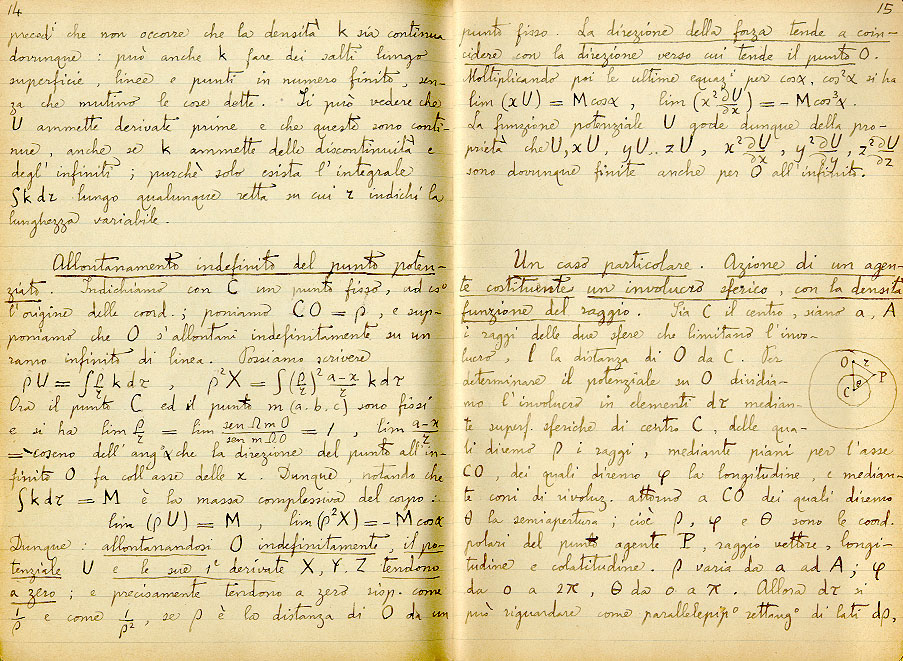 14
preced.ⁱ che non occorre che la densità k sia continua
dovunque: può anche k fare dei salti lungo
superficie linee e punti in numero finito, sen-
za che mutino le cose dette. Si può vedere che
U ammette derivate prime e che queste sono conti-
nue, anche se k ammette delle discontinuità e
degl'infiniti; purchè solo esista l'integrale
∫k dr lungo qualunque retta su cui r indichi la
lunghezza variabile.
Allontanamento indefinito del punto poten-
ziato. Indichiamo con C un punto fisso, ad es°
l'origine delle coord.; poniamo CO = ρ, e sup-
poniamo che O s'allontani indefinitamente su un
ramo infinito di linea. Possiamo scrivere
ρU = ∫ρ/r k dτ , ρ²X = ∫(ρ/r)² a-x/r k dτ
Ora il punto C ed il punto m (a.b.c) sono fissi
e si ha lim ρ/r = lim sen O m O / sen m O O = 1, lim a-x/r
= -coseno dell'ang° α che la direzione del punto all'in-
finito O fa coll'asse delle x. Dunque, notando che
∫k dτ = M è la massa complessiva del corpo:
lim (ρU) = M , lim (ρ²X) = -M cosα
Dunque: allontanandosi O indefinitamente, il po-
tenziale U e le sue 1ᵉ derivate X, Y, Z tendono
a zero; e precisamente tendono a zero risp. come
1/ρ e come 1/ρ², se ρ è la distanza di O da un
15
punto fisso. La direzione della forza tende a coin-
cidere con la direzione verso cui tende il punto O.
Moltiplicando poi le ultime equaz.ⁱ per cosα, cos²α si ha
lim (xU) = M cosα , lim (x² ∂U/∂x) = -M cos³α.
La funzione potenziale U gode dunque della pro-
prietà che U, xU, yU.. zU, x² ∂U/∂x , y² ∂U/∂y , z² ∂U/∂z
sono dovunque finite anche per O all'infinito.
Un caso particolare. Azione di un agen-
te costituente un involucro sferico, con la densità
funzione del raggio. Sia C il centro, siano a, A
i raggi delle due sfere che limitano l'invo-
lucro, l la distanza di O da C. Per
determinare il potenziale su O dividia-
mo l'involucro in elementi dτ median-
te superf. sferiche di centro C, delle qua-
li diremo ρ i raggi, mediante piani per l'asse
CO, dei quali diremo φ la longitudine, e median-
te coni di rivoluz. attorno a CO dei quali diremo
θ la semiapertura; cioè ρ, φ e θ sono le coord.
polari del punto agente P, raggio vettore, longi-
tudine e colatitudine. ρ varia da a ad A; φ
da 0 a 2π, θ da 0 a π. Allora dτ si
può riguardare come parallelepip° rettang° di lati dρ,
O r P
C ρ θ